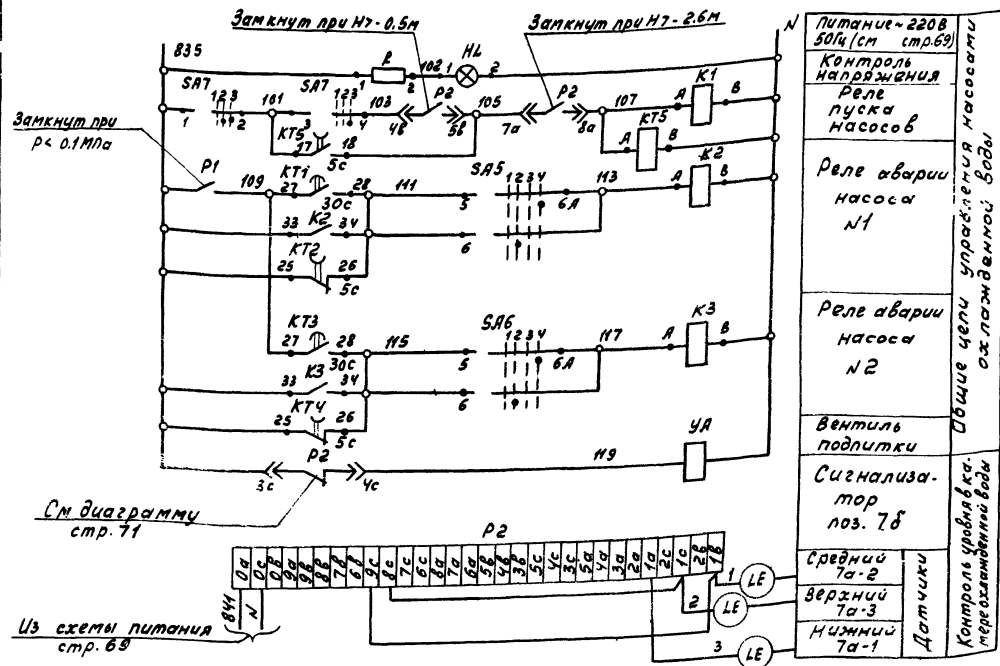 Замкнут при H7-0.5м
Замкнут при H7-2.6м
N
835
R
1
2
102
1
HL
2
SA7
1 2 3
1
2
101
SA7
1 2 3
3
4
103
P2
4в
5в
105
P2
7а
8а
107
A
K1
B
KT5
17
18
5с
A
KT5
B
Замкнут при
P< 0.1МПа
P1
109
KT1
27
28
30с
111
SA5
1 2 3 4
5
6А
113
A
K2
B
K2
33
34
6
KT2
25
26
5с
KT3
27
28
30с
115
SA6
1 2 3 4
5
6А
117
A
K3
B
K3
33
34
6
KT4
25
26
5с
P2
3с
4с
119
УА
См диаграмму
стр. 71
P2
0а 0с 0в 9а 9в 8в 7в 6в 9с 8с 7с 6с 8а 7а 6а 5в 4в 3в 5с 4с 3с 5а 4а 3а 2а 1а 1с 2в 1в
841
N
Из схемы питания
стр. 69
1
LE
2
LE
3
LE
Питание ~ 220В
50Гц (см стр.69)
Контроль
напряжения
Реле
пуска
насосов
Реле аварии
насоса
N1
Реле аварии
насоса
N2
Вентиль
подпитки
Сигнализа-
тор
поз. 7.б
Средний
7а-2
Верхний
7а-3
Нижний
7а-1
Датчики
Общие цепи управления насосами
охлажденной воды
Контроль уровня в ка-
мере охлажденной воды